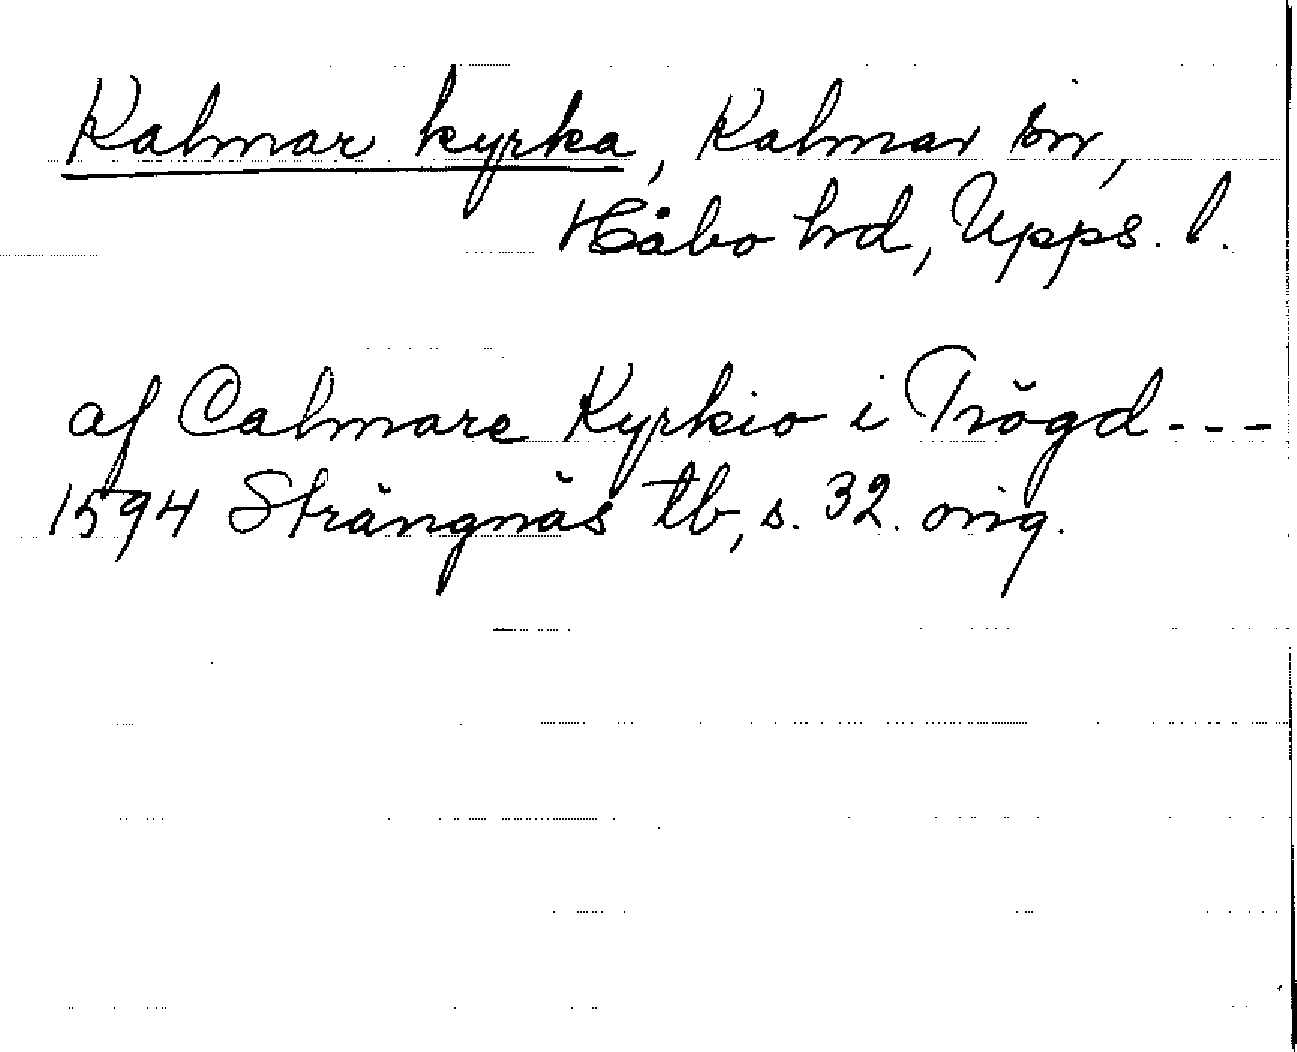 Kalmar kyrka, Kalmar sn,
Håbo hd, Upps. l.
af Calmare Kyrkio i Trögd---
1594 Strängnäs tb, s. 32. orig.